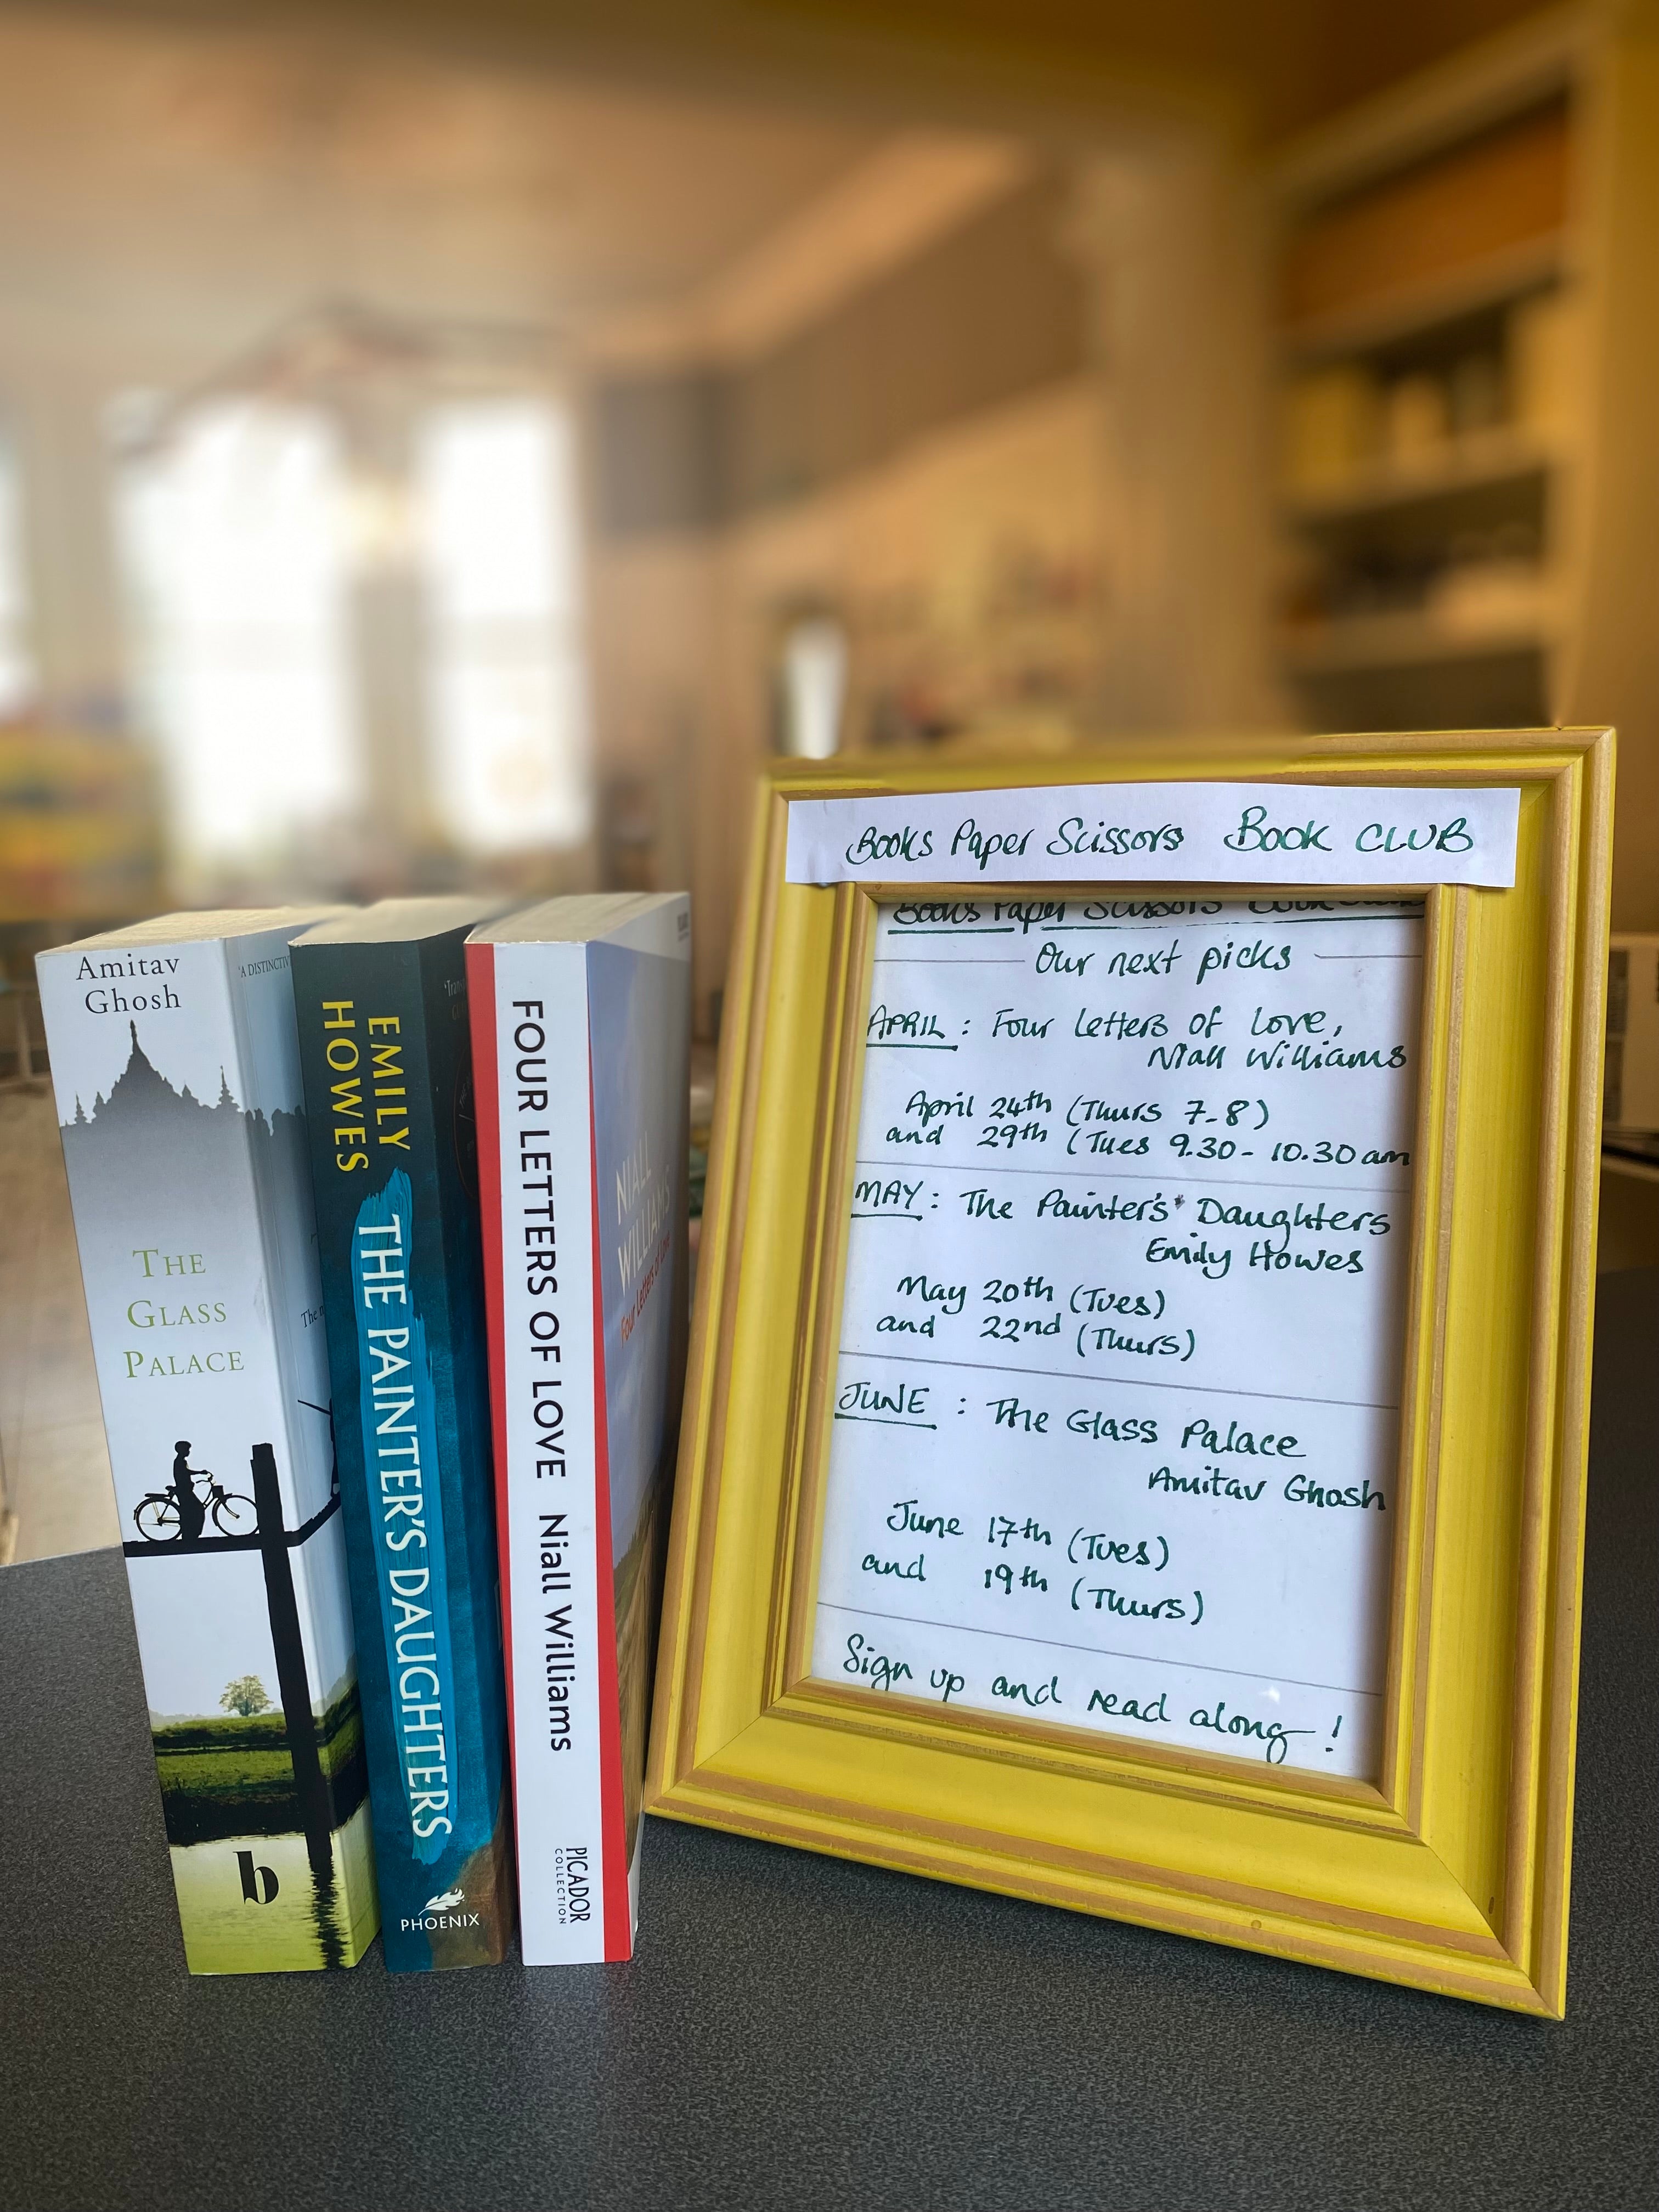 Amitav
Ghosh
THE
GLASS
PALACE
b
'A DISTINCTIV
EMILY
HOWES
THE PAINTER'S DAUGHTERS
PHOENIX
FOUR LETTERS OF LOVE Niall Williams
PICADOR
COLLECTION
NIALL
WILLIAMS
Four Letters of Love
Books Paper Scissors Book CLUB
Books Paper Scissors
Our next picks
APRIL : Four Letters of Love,
Niall Williams
April 24th (Thurs 7-8)
and 29th (Tues 9.30 - 10.30 am
MAY : The Painter's' Daughters
Emily Howes
May 20th (Tues)
and 22nd (Thurs)
JUNE : The Glass Palace
Amitav Ghosh
June 17th (Tues)
and 19th (Thurs)
Sign up and read along !